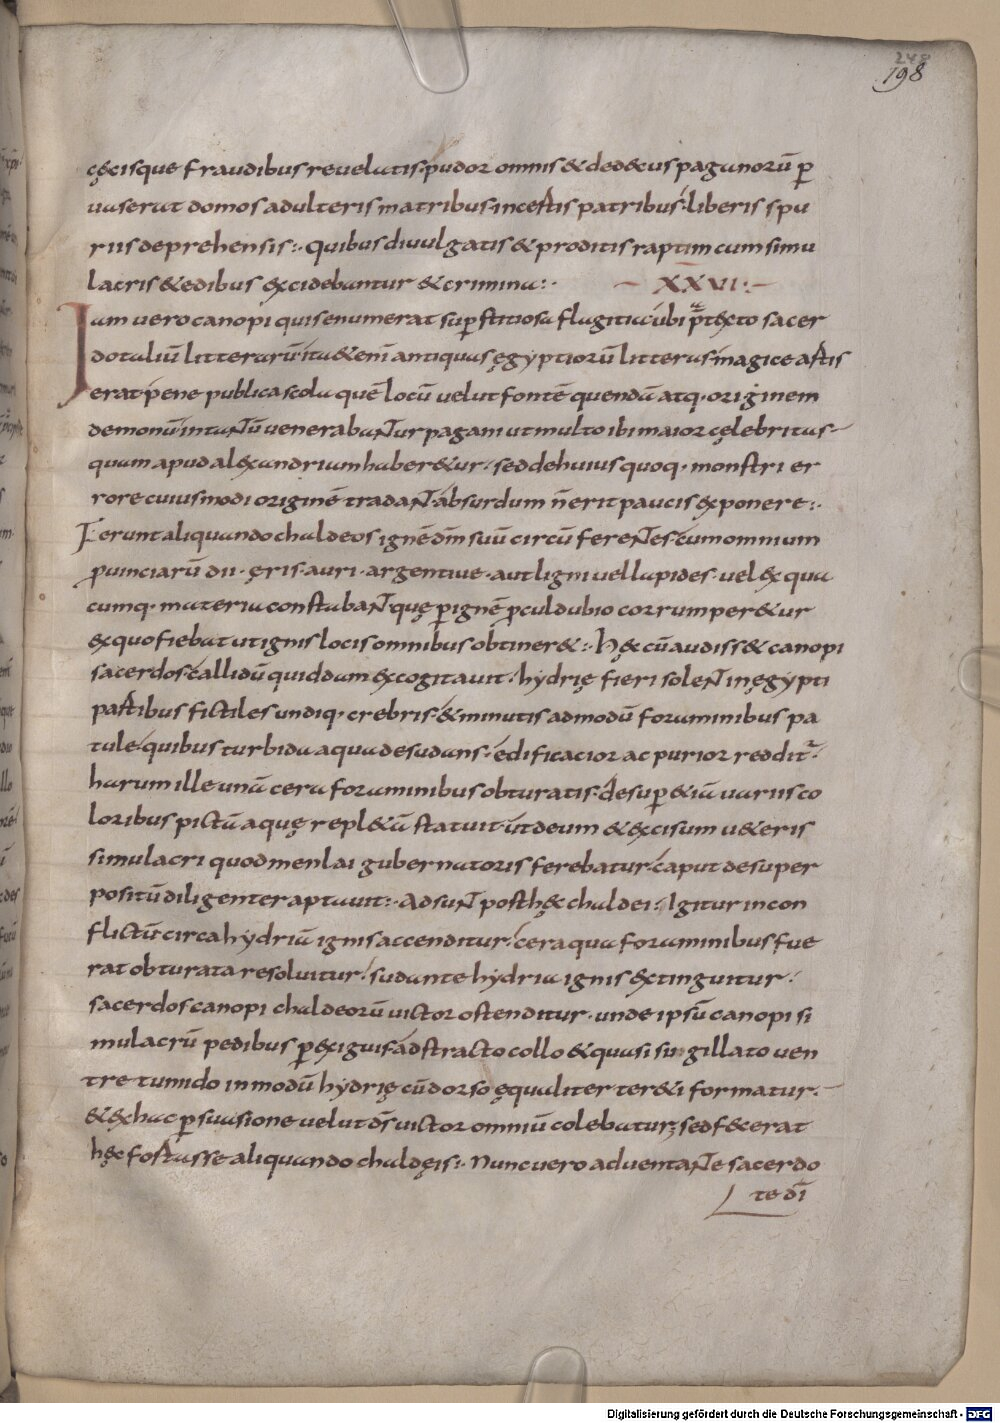 248
198
cęcisque fraudibus reuelatis· pudor omnis & dedecus paganorū p
uaserat domos adulteris matribus· incestis patribus· liberis spu
riis deprehensis:· quibus diuulgatis & proditis raptim cum simu
lacris & edibus excidebantur & crimina:·
XXVI:·
Iam uero canopi quis enumerat supstitiosa flagitia ubi ptexto sacer
dotaliū litterarū· ita & enī antiquas ęgyptiorū litteras· magice astis
erat pene publica scola quē locū uelut fontē quendā atq· originem
demonū intantū uenerabantur pagani ut multo ibi maior cęlebritas
quam apud alexandriam haber&ur· sed de huius quoq· monstri er
rore cuiusmodi originē tradant· absurdum ñ erit paucis exponere:·
Ferunt aliquando chaldeos ignē dm̄ suū circū ferentes· cum omnium
puinciarū dii· ęris· auri· argentiue· aut ligni uel lapides· uel ex qua
cumq· materia constabant quę p ignē pculdubio corrumper&ur
ex quo fiebat ut ignis locis omnibus obtiner&:· hęc cū audiss& canopi
sacerdos· callidū quiddam excogitauit· hydrię fieri solent in ęgypti
pastibus fictiles undiq· crebris· & minutis admodū foraminibus pa
tule· quibus turbida aqua desudans· edificacior ac purior reddit̄·
harum ille unā cera foraminibus obturatis· desup & iā uariis co
loribus pictā aquę repl&ā statuit· ut deum & excisum u&eris
simulacri quod menlai gubernatoris ferebatur· caput desuper
positū diligenter aptauit:· Adsunt post hęc chaldei:· Igitur in con
flictū circa hydriā ignis accenditur· cera qua foraminibus fue
rat obturata resoluitur· sudante hydria ignis extinguitur·
sacerdos canopi chaldeorū uictor ostenditur· unde ipsū canopi si
mulacrū pedibus pexiguis· adstracto collo & quasi sugillato uen
tre tumido in modū hydrię cū dorso ęqualiter ter&i formatur·
& ex hac psuasione uelut ds̄ uictor omniū colebatur; sed fecerat
hęc fostasse aliquando chaldęis:· Nunc uero aduentante sacerdo
te dī
Digitalisierung gefördert durch die Deutsche Forschungsgemeinschaft - DFG